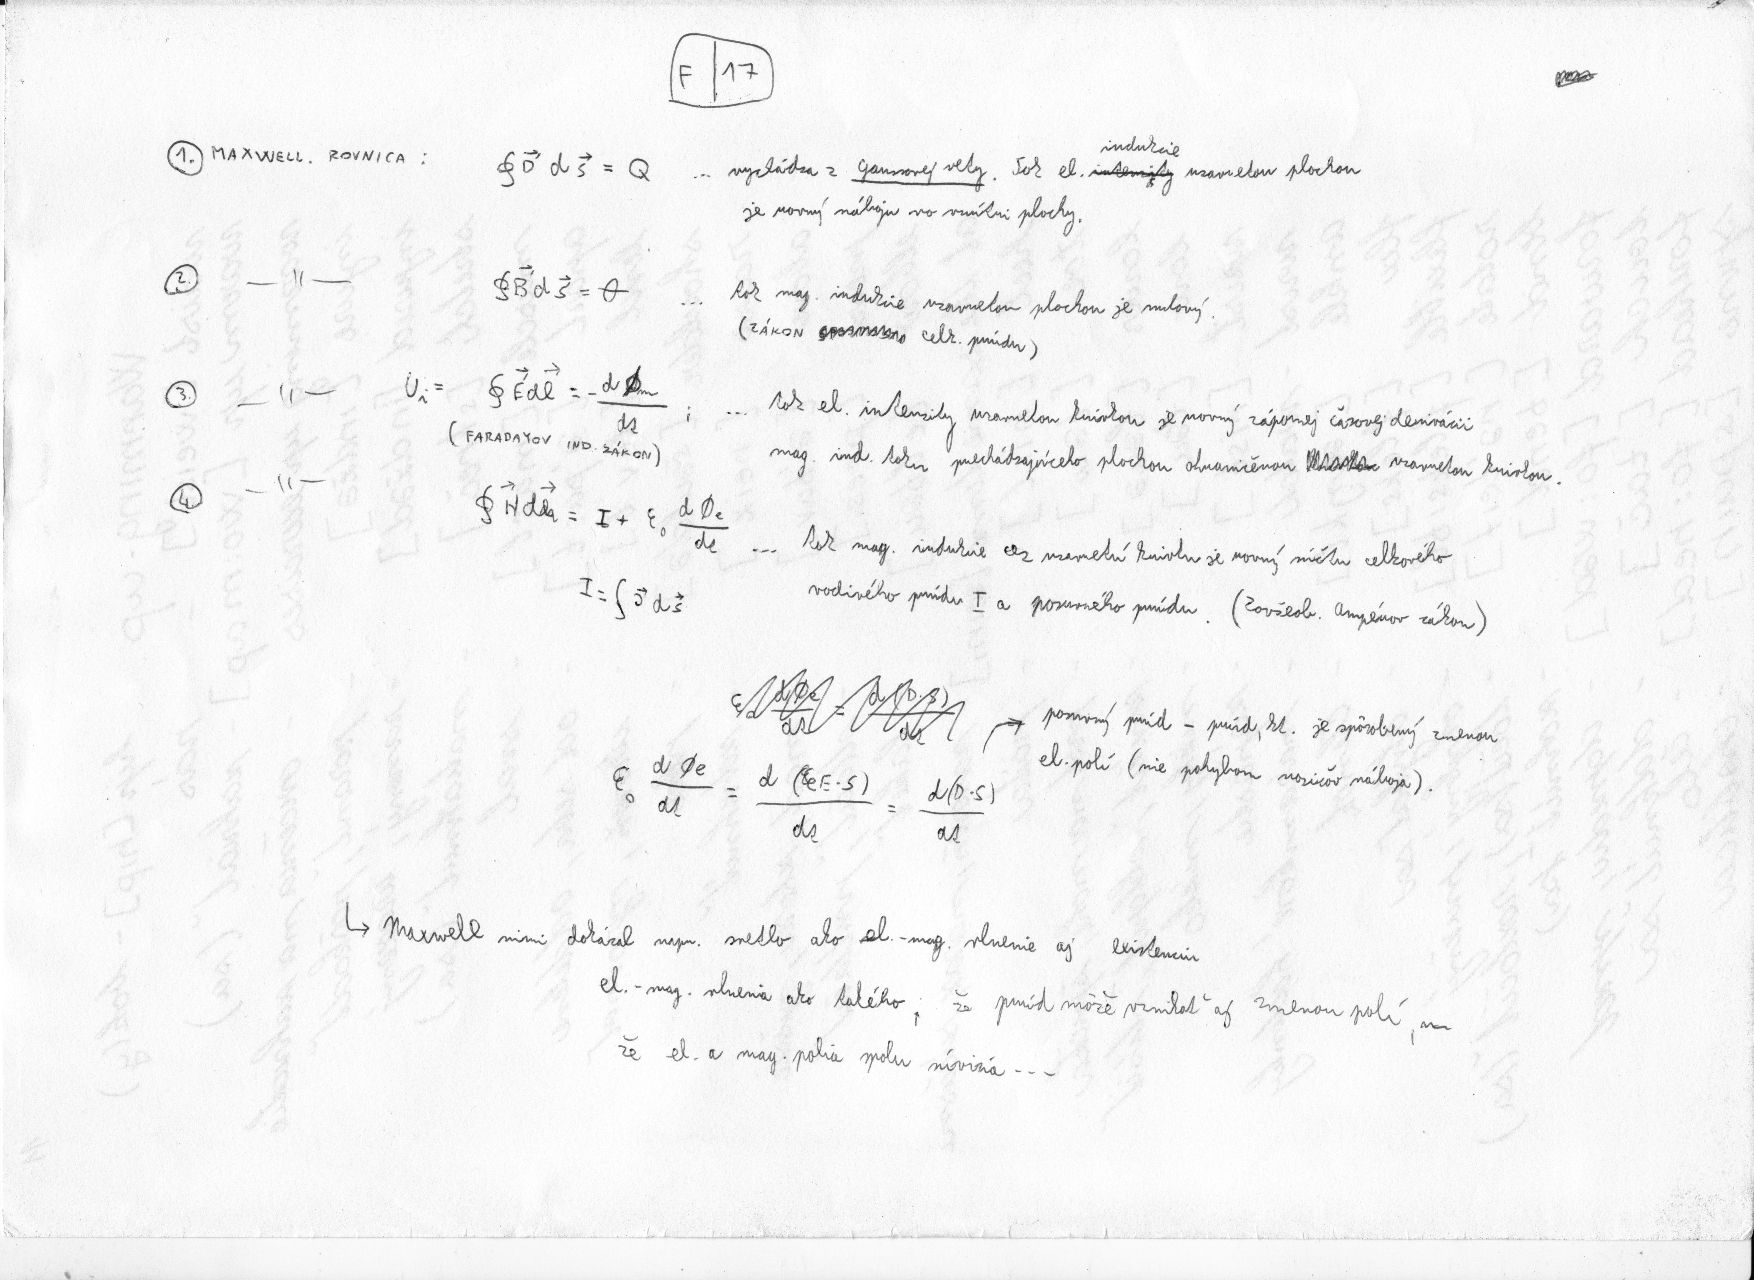 F | 17
1. MAXWELL. ROVNICA : ∮ D⃗ d S⃗ = Q ... vychádza z Gaussovej vety. Tok el. indukcie uzavretou plochou
je rovný náboju vo vnútri plochy.
2. —"— ∮ B⃗ d S⃗ = 0 ... tok mag. indukcie uzavretou plochou je nulový.
(ZÁKON celk. prúdu)
3. —"— Ui = ∮ E⃗ dl⃗ = - dΦm / dt ; ... tok el. intenzity uzavretou krivkou je rovný zápornej časovej derivácii
(FARADAYOV IND. ZÁKON) mag. ind. toku prechádzajúceho plochou ohraničenou uzavretou krivkou.
4. —"— ∮ H⃗ dl⃗ = I + ε₀ dΦe / dt ... tok mag. indukcie cez uzavretú krivku je rovný súčtu celkového
I = ∫ J⃗ d S⃗ vodivého prúdu I a posuvného prúdu. (Zovšeob. Ampérov zákon)
→ posuvný prúd – prúd, kt. je spôsobený zmenou
el. polí (nie pohybom nosičov náboja).
ε₀ dΦe / dt = d (εE·S) / dt = d(D·S) / dt
↳ Maxwell nimi dokázal napr. svetlo ako el.-mag. vlnenie aj existenciu
el.-mag. vlnenia ako takého, že prúd môže vznikať aj zmenou polí,
že el. a mag. polia spolu súvisia ---